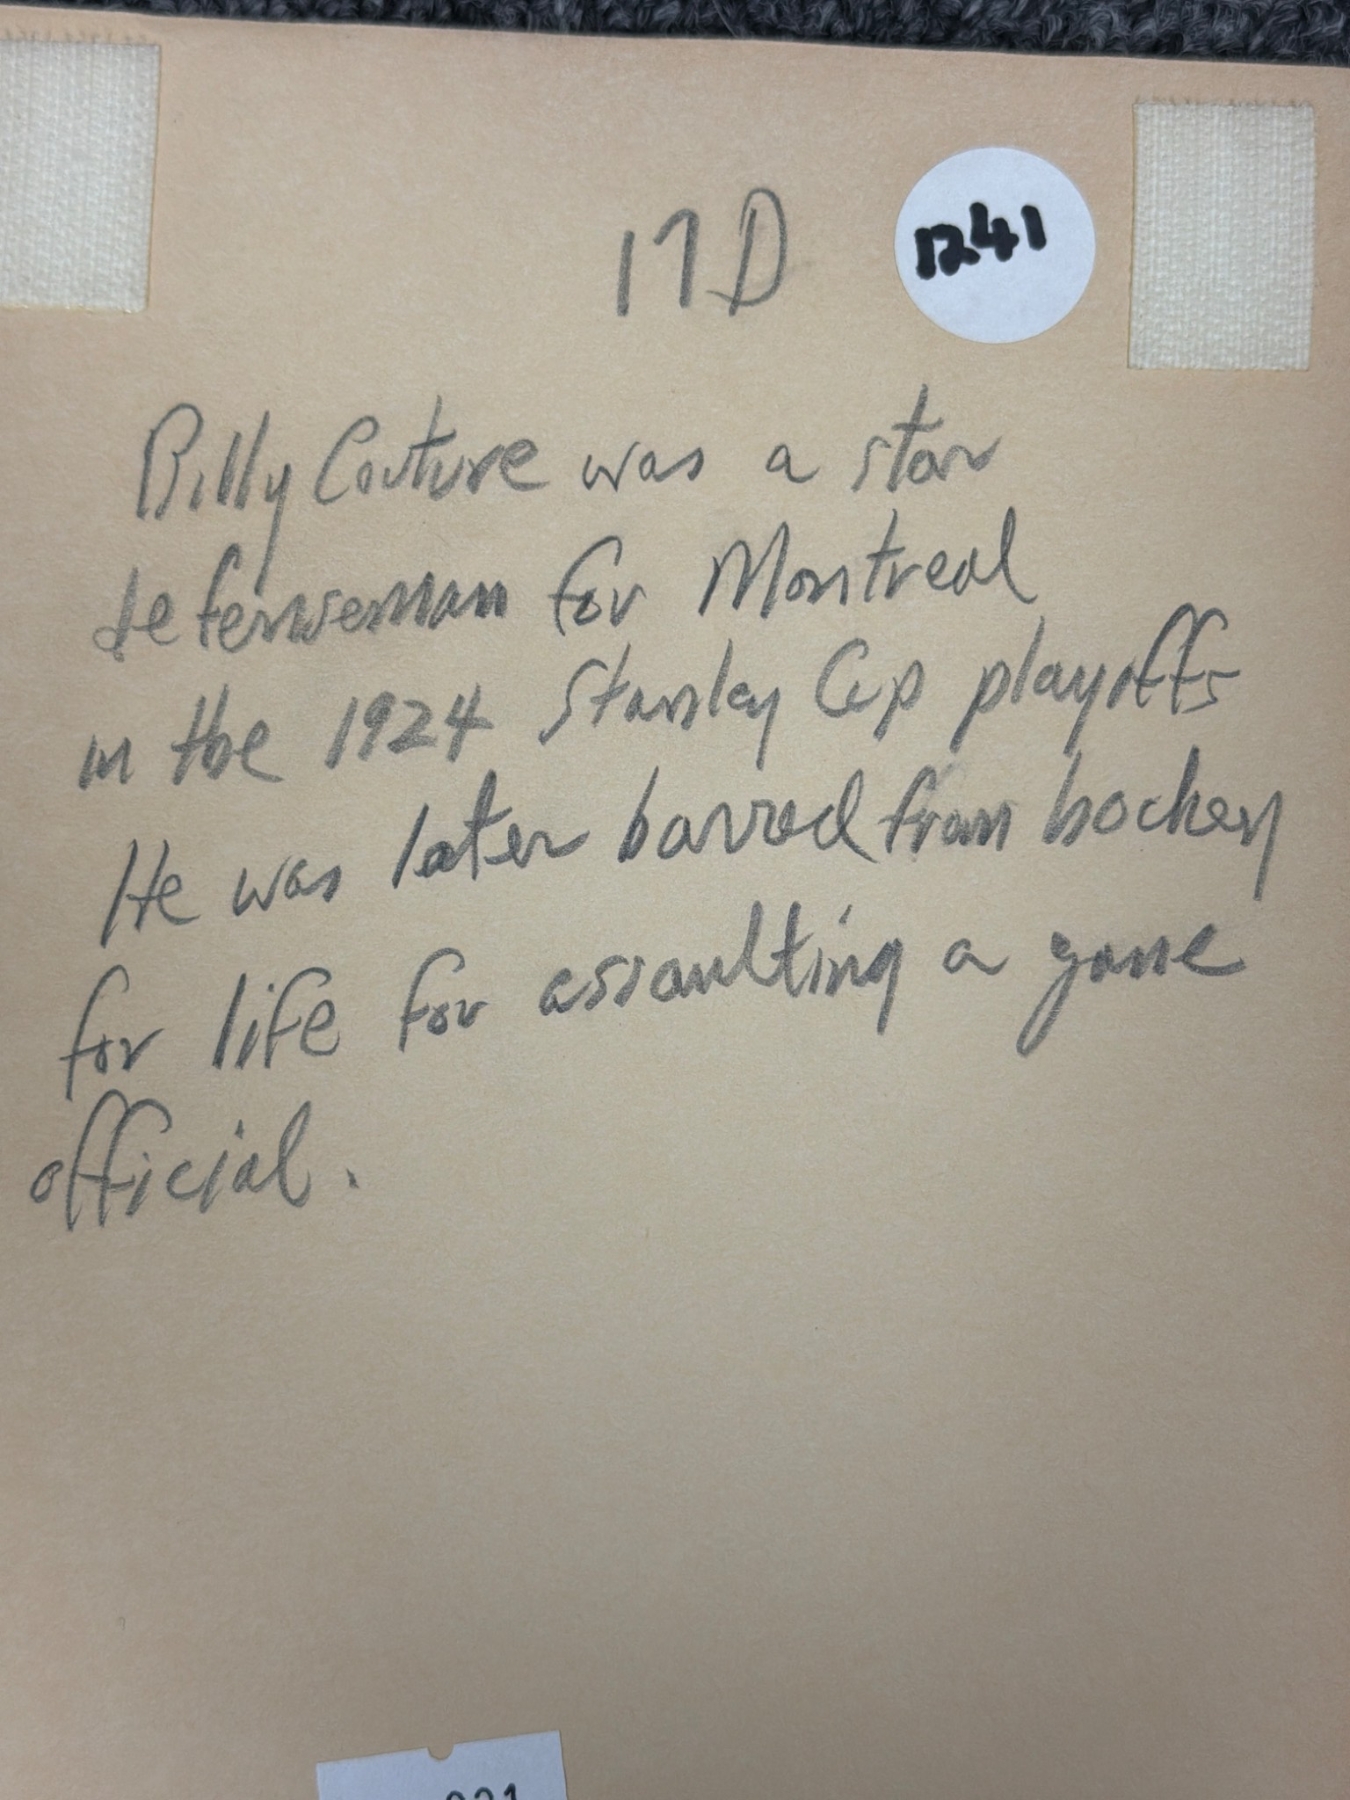 17D
1241
Billy Couture was a star
defenseman for Montreal
in the 1924 Stanley Cup playoffs
He was later barred from hockey
for life for assaulting a game
official.